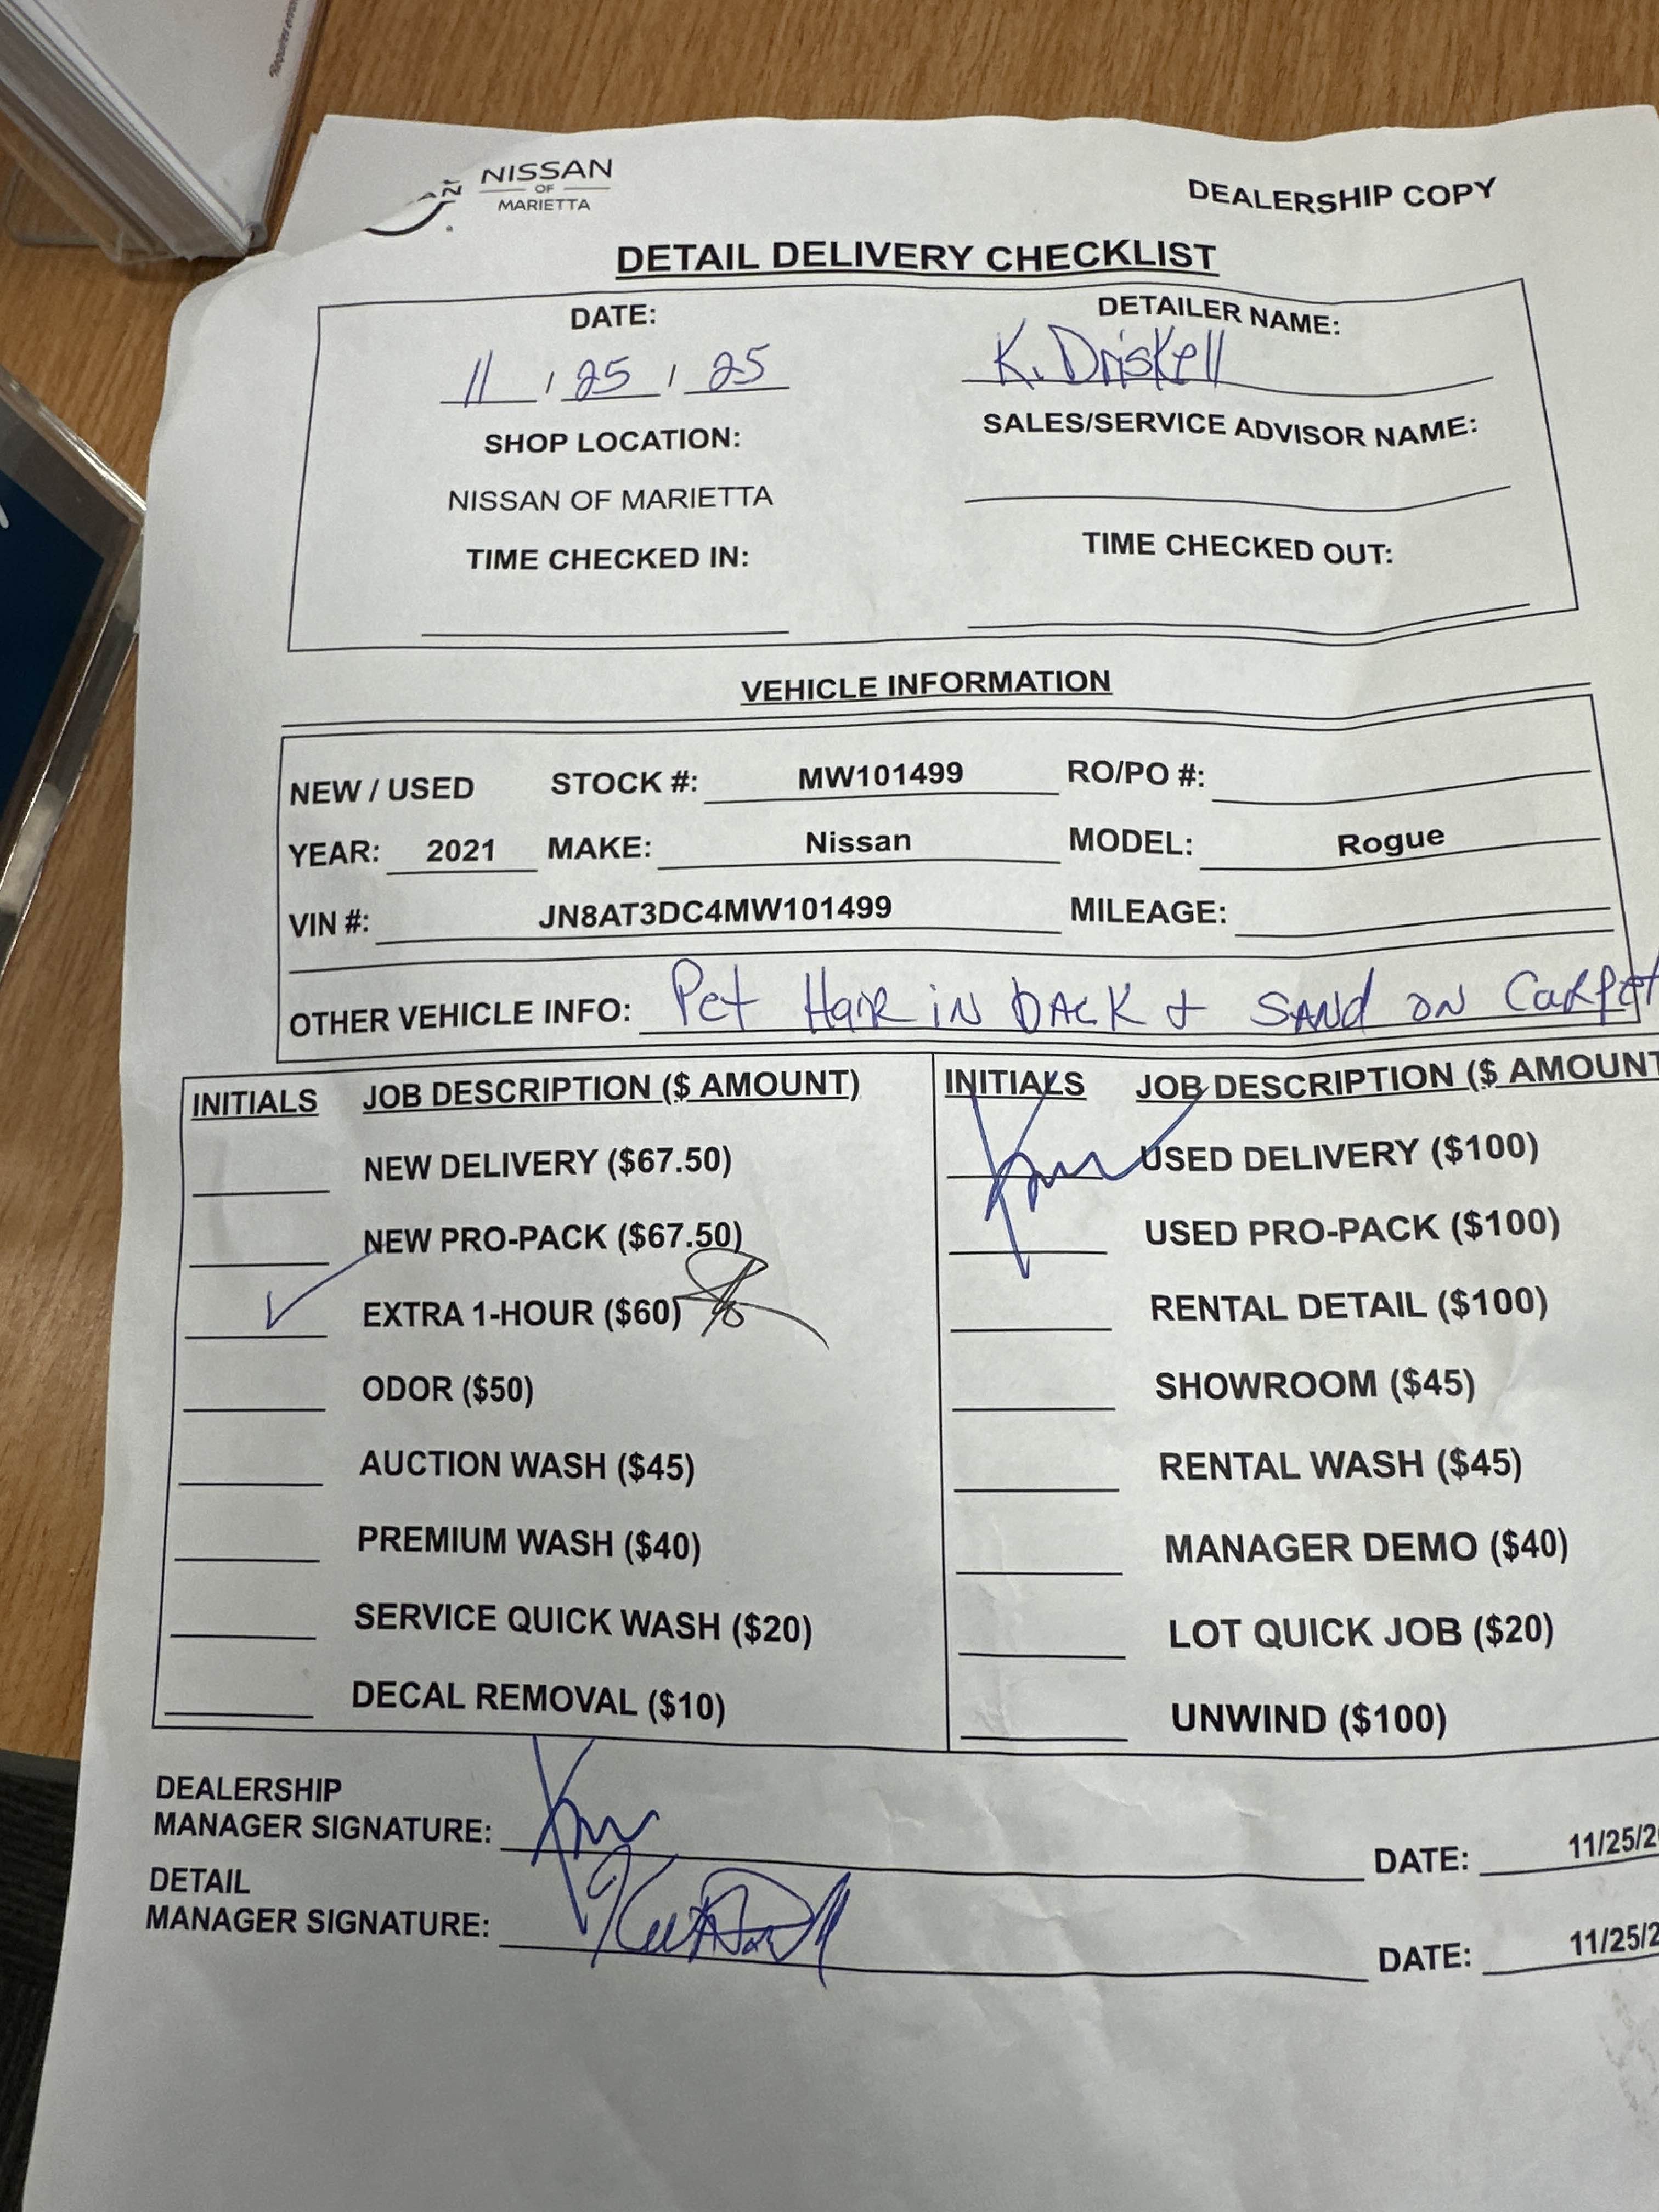 NISSAN
OF
MARIETTA
DEALERSHIP COPY
DETAIL DELIVERY CHECKLIST
DATE: DETAILER NAME:
11 / 25 / 25 K. Driskell
SHOP LOCATION: SALES/SERVICE ADVISOR NAME:
NISSAN OF MARIETTA
TIME CHECKED IN: TIME CHECKED OUT:
VEHICLE INFORMATION
NEW / USED STOCK #: MW101499 RO/PO #:
YEAR: 2021 MAKE: Nissan MODEL: Rogue
VIN #: JN8AT3DC4MW101499 MILEAGE:
OTHER VEHICLE INFO: Pet Hair in back + SANd ON Carpet
INITIALS JOB DESCRIPTION ($ AMOUNT) INITIALS JOB DESCRIPTION ($ AMOUNT
NEW DELIVERY ($67.50) USED DELIVERY ($100)
NEW PRO-PACK ($67.50) USED PRO-PACK ($100)
EXTRA 1-HOUR ($60) RENTAL DETAIL ($100)
ODOR ($50) SHOWROOM ($45)
AUCTION WASH ($45) RENTAL WASH ($45)
PREMIUM WASH ($40) MANAGER DEMO ($40)
SERVICE QUICK WASH ($20) LOT QUICK JOB ($20)
DECAL REMOVAL ($10) UNWIND ($100)
DEALERSHIP
MANAGER SIGNATURE: DATE: 11/25/2
DETAIL
MANAGER SIGNATURE: DATE: 11/25/2